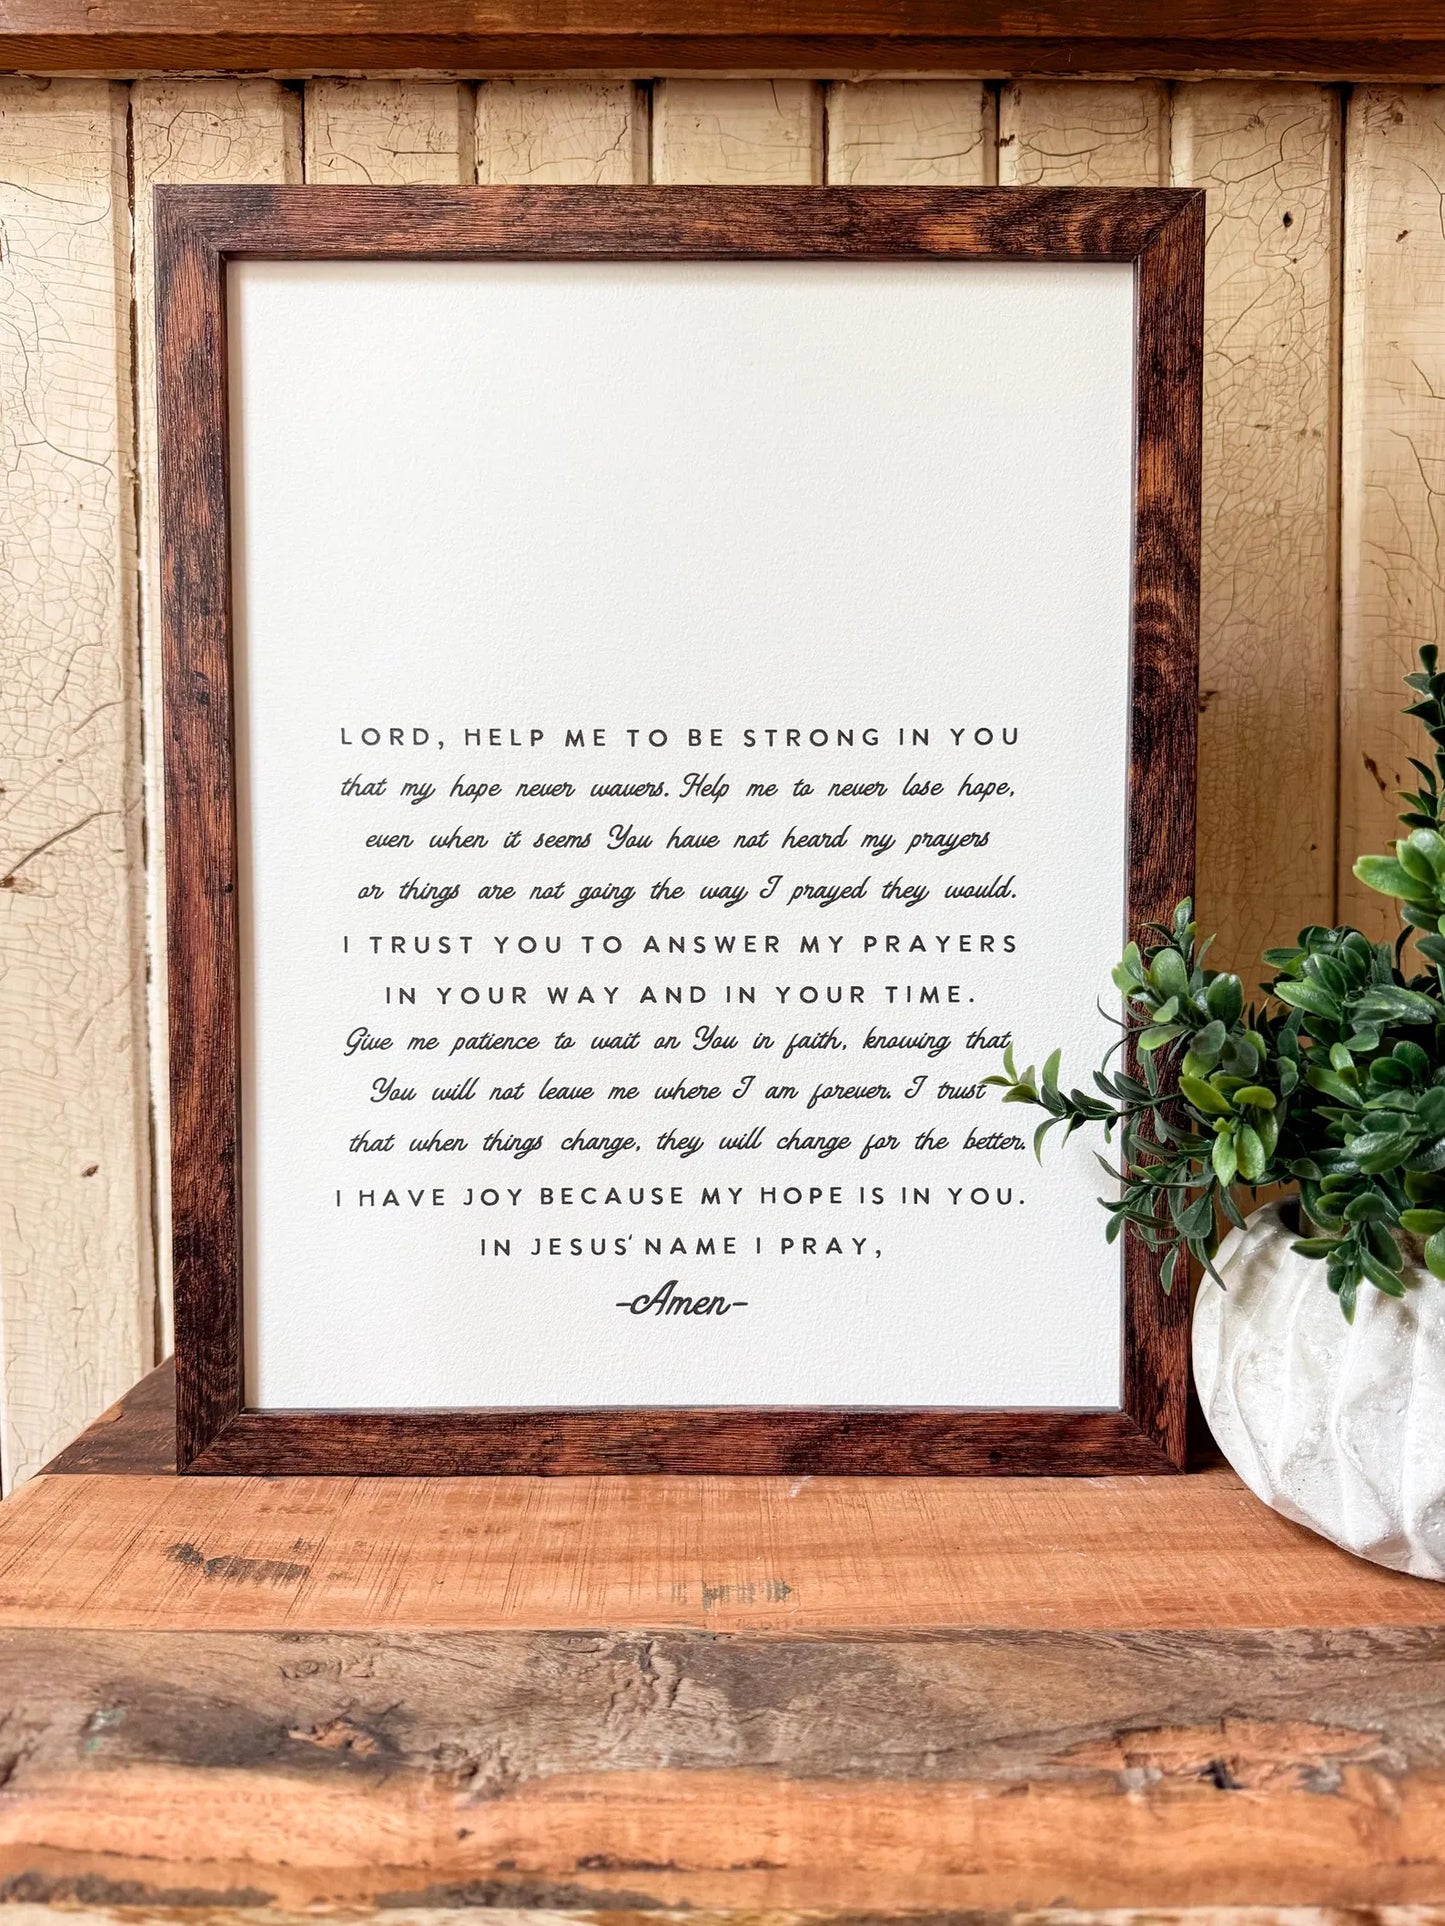 LORD, HELP ME TO BE STRONG IN YOU
that my hope never wavers. Help me to never lose hope,
even when it seems You have not heard my prayers
or things are not going the way I prayed they would.
I TRUST YOU TO ANSWER MY PRAYERS
IN YOUR WAY AND IN YOUR TIME.
Give me patience to wait on You in faith, knowing that
You will not leave me where I am forever. I trust
that when things change, they will change for the better.
I HAVE JOY BECAUSE MY HOPE IS IN YOU.
IN JESUS' NAME I PRAY,
-Amen-